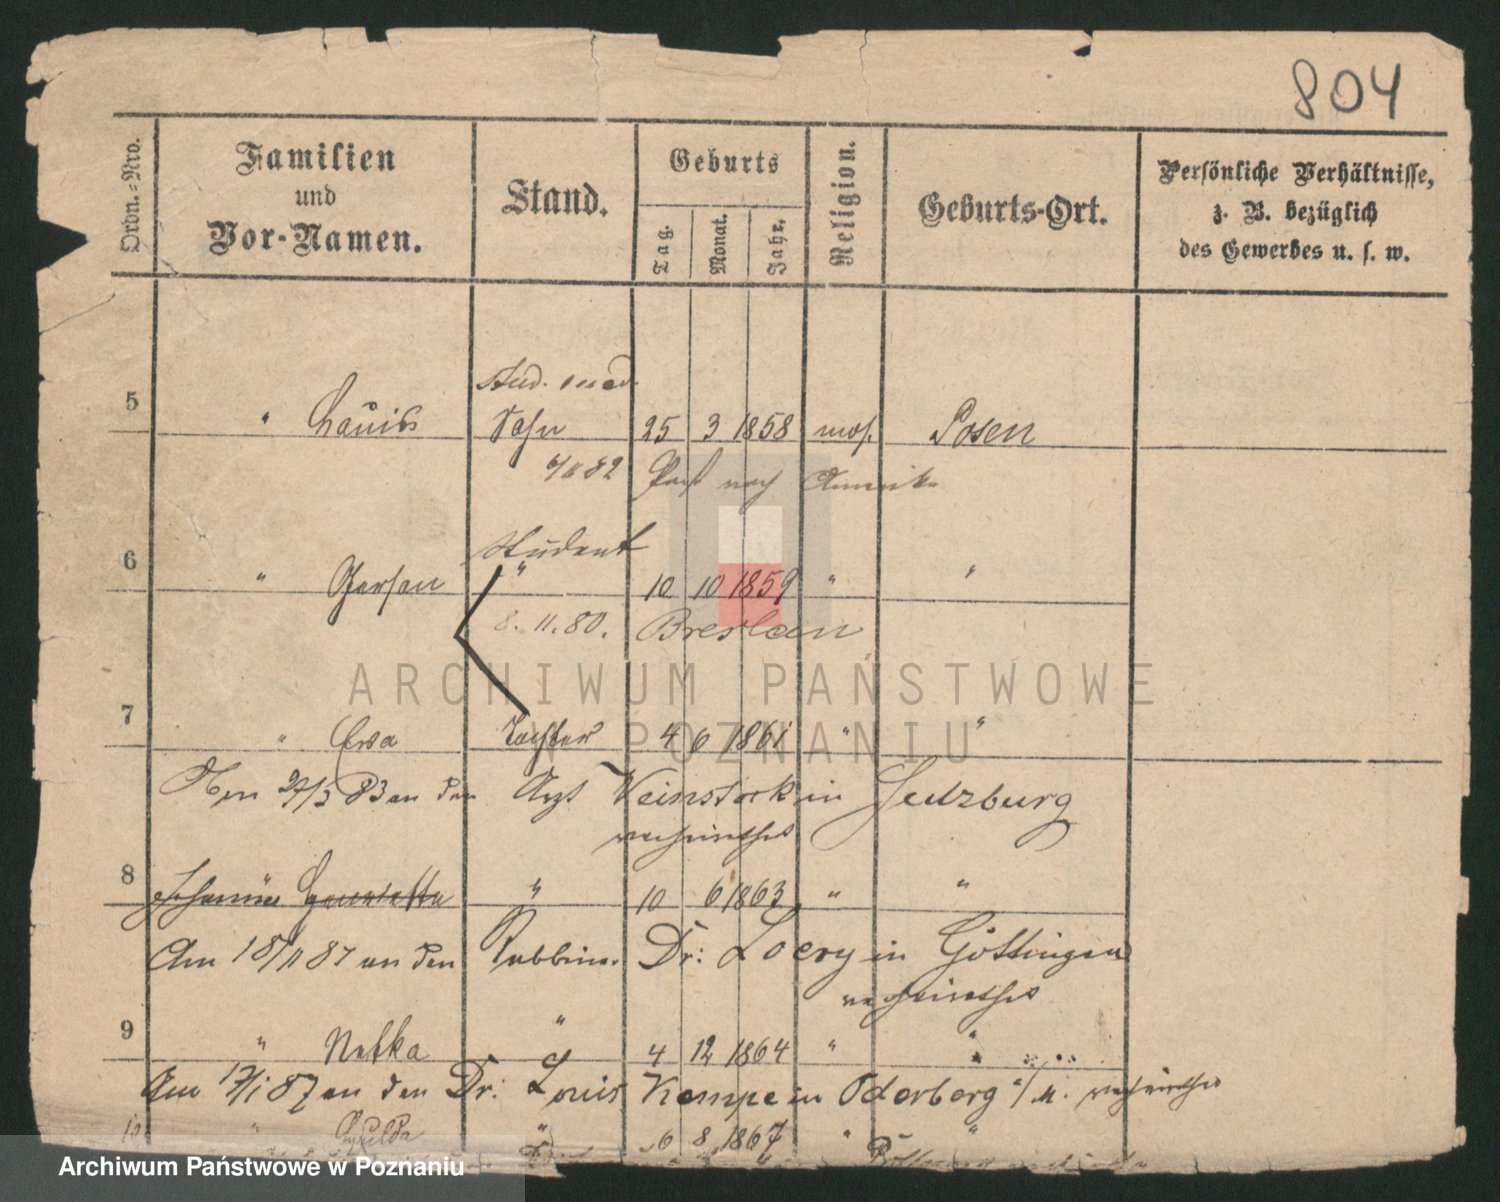 804
Ordn.-Nro.
Familien
und
Vor-Namen.
Stand.
Geburts
Tag.
Monat.
Jahr.
Religion.
Geburts-Ort.
Persönliche Verhältnisse,
z. B. bezüglich
des Gewerbes u. s. w.
stud. med.
5 " Louis Sohn 25 3 1858 mos. Posen
6/11 82 Paß nach Amerika
Student
6 " Gerson " 10 10 1859 " "
8. 11. 80. Breslau
7 " Ewa Tochter 4 6 1861 " "
Am 27/3 83 an den Arzt Weinstock in
verheirathet
8 Johanna " 10 6 1863 " "
Am 18/11 87 an den Rabbiner Dr: Loewy in Göttingen
verheirathet
9 " Netka " 4 12 1864 " "
Am 17/1 87 an den Dr: Louis Kempe in Oderberg a/M. verheirathet
10 " " 6 8 1867 " "
ARCHIWUM PAŃSTWOWE
W POZNANIU
Archiwum Państwowe w Poznaniu